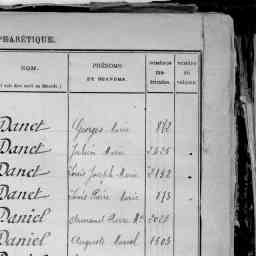 PHABÉTIQUE.
NOM. PRÉNOMS ET SURNOMS. NUMÉROS MA-TRICULES. NUMÉRO DU VOLUME
Danet Georges Marie 872
Danet Julien Marie
Danet Louis Joseph Marie 2192
Danet Louis Pierre Marie 873
Daniel Pierre M.
Daniel Auguste Marcel 1503